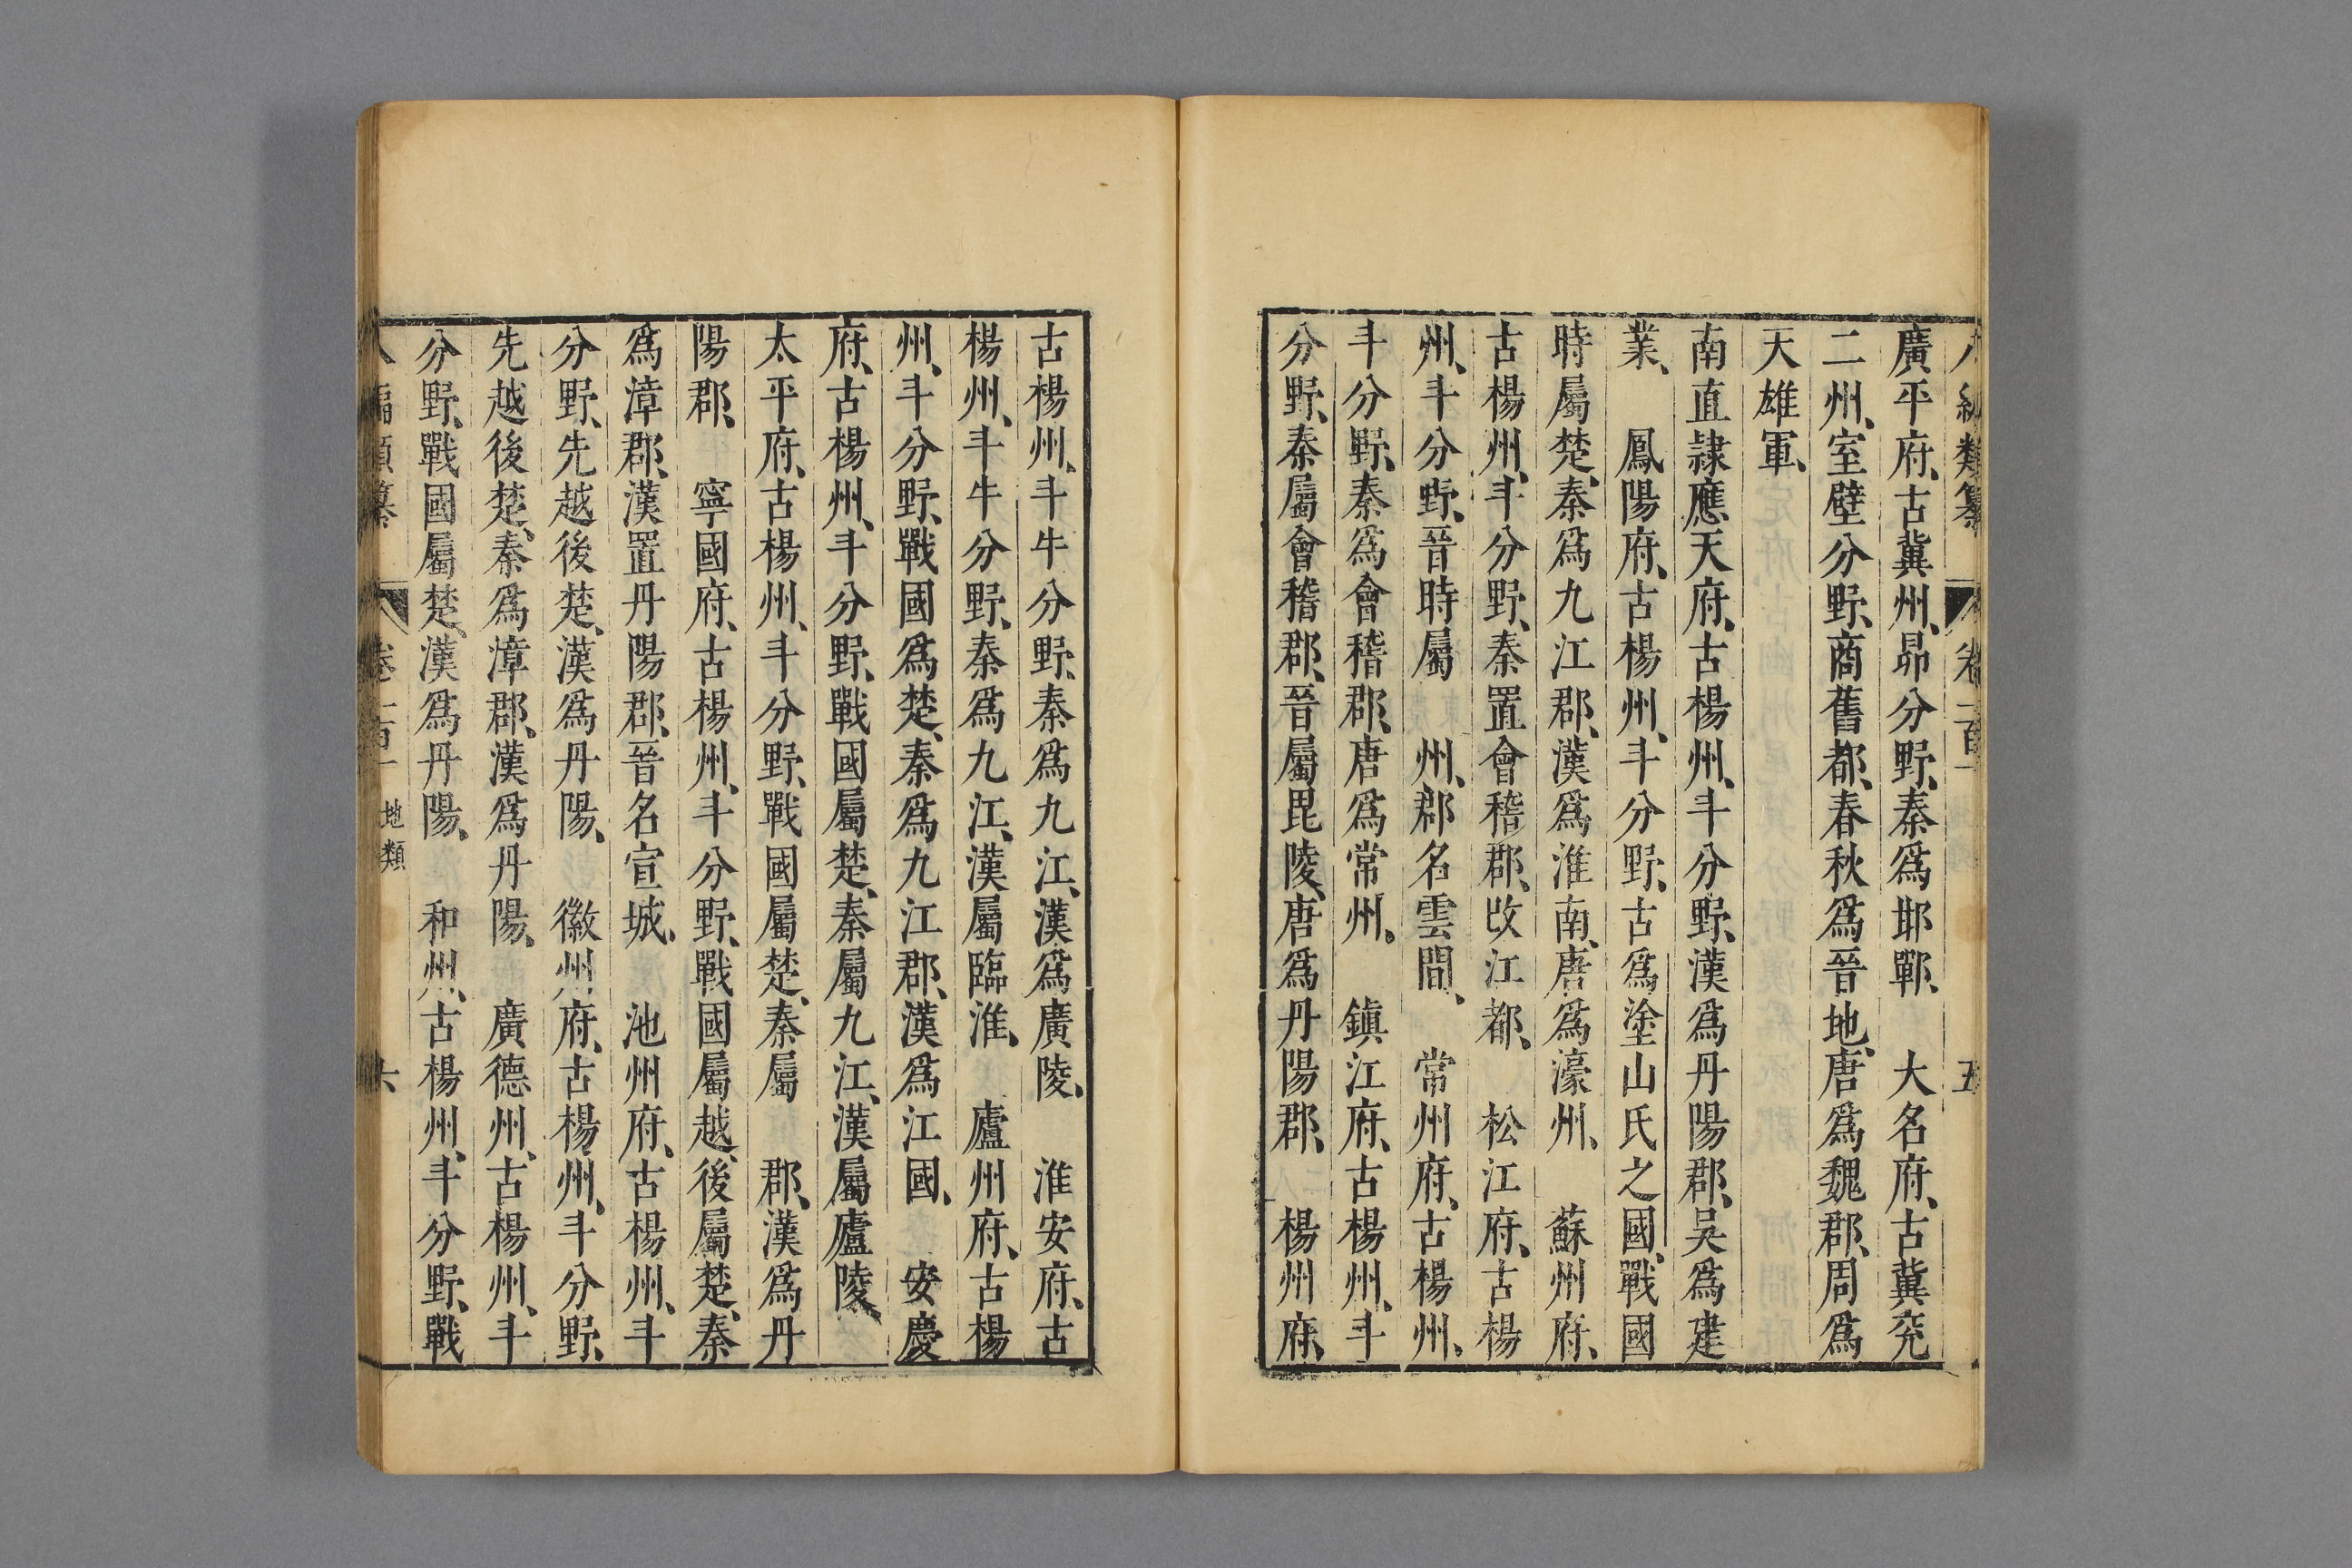 八編類纂 卷一百一 五
廣平府、古冀州、昴分野、秦爲邯鄲、 大名府、古冀兖
二州、室壁分野、商舊都、春秋爲晉地、唐爲魏郡、周爲
天雄軍、
南直隷應天府、古楊州、斗分野、漢爲丹陽郡、吳爲建
業、 鳳陽府、古楊州、斗分野、古爲塗山氏之國、戰國
時屬楚、秦爲九江郡、漢爲淮南、唐爲濠州、 蘇州府、
古楊州、斗分野、秦置會稽郡、改江都、 松江府、古楊
州、斗分野、晉時屬 州、郡名雲間、 常州府、古楊州、
斗分野、秦爲會稽郡、唐爲常州。 鎮江府、古楊州、斗
分野、秦屬會稽郡、晉屬毘陵、唐爲丹陽郡、 楊州府、
古楊州、斗牛分野、秦爲九江、漢爲廣陵、 淮安府、古
楊州、斗牛分野、秦爲九江、漢屬臨淮、 廬州府、古楊
州、斗分野、戰國爲楚、秦爲九江郡、漢爲江國、 安慶
府、古楊州、斗分野、戰國屬楚、秦屬九江、漢屬廬陵、
太平府、古楊州、斗分野、戰國屬楚、秦屬 郡、漢爲丹
陽郡、 寧國府、古楊州、斗分野、戰國屬越、後屬楚、秦
爲漳郡、漢置丹陽郡、晉名宣城、 池州府、古楊州、斗
分野、先越後楚、漢爲丹陽、 徽州府、古楊州、斗分野、
先越後楚、秦爲漳郡、漢爲丹陽、 廣德州、古楊州、斗
分野、戰國屬楚、漢爲丹陽、 和州、古楊州、斗分野、戰
八編類纂 卷一百一 地類 六